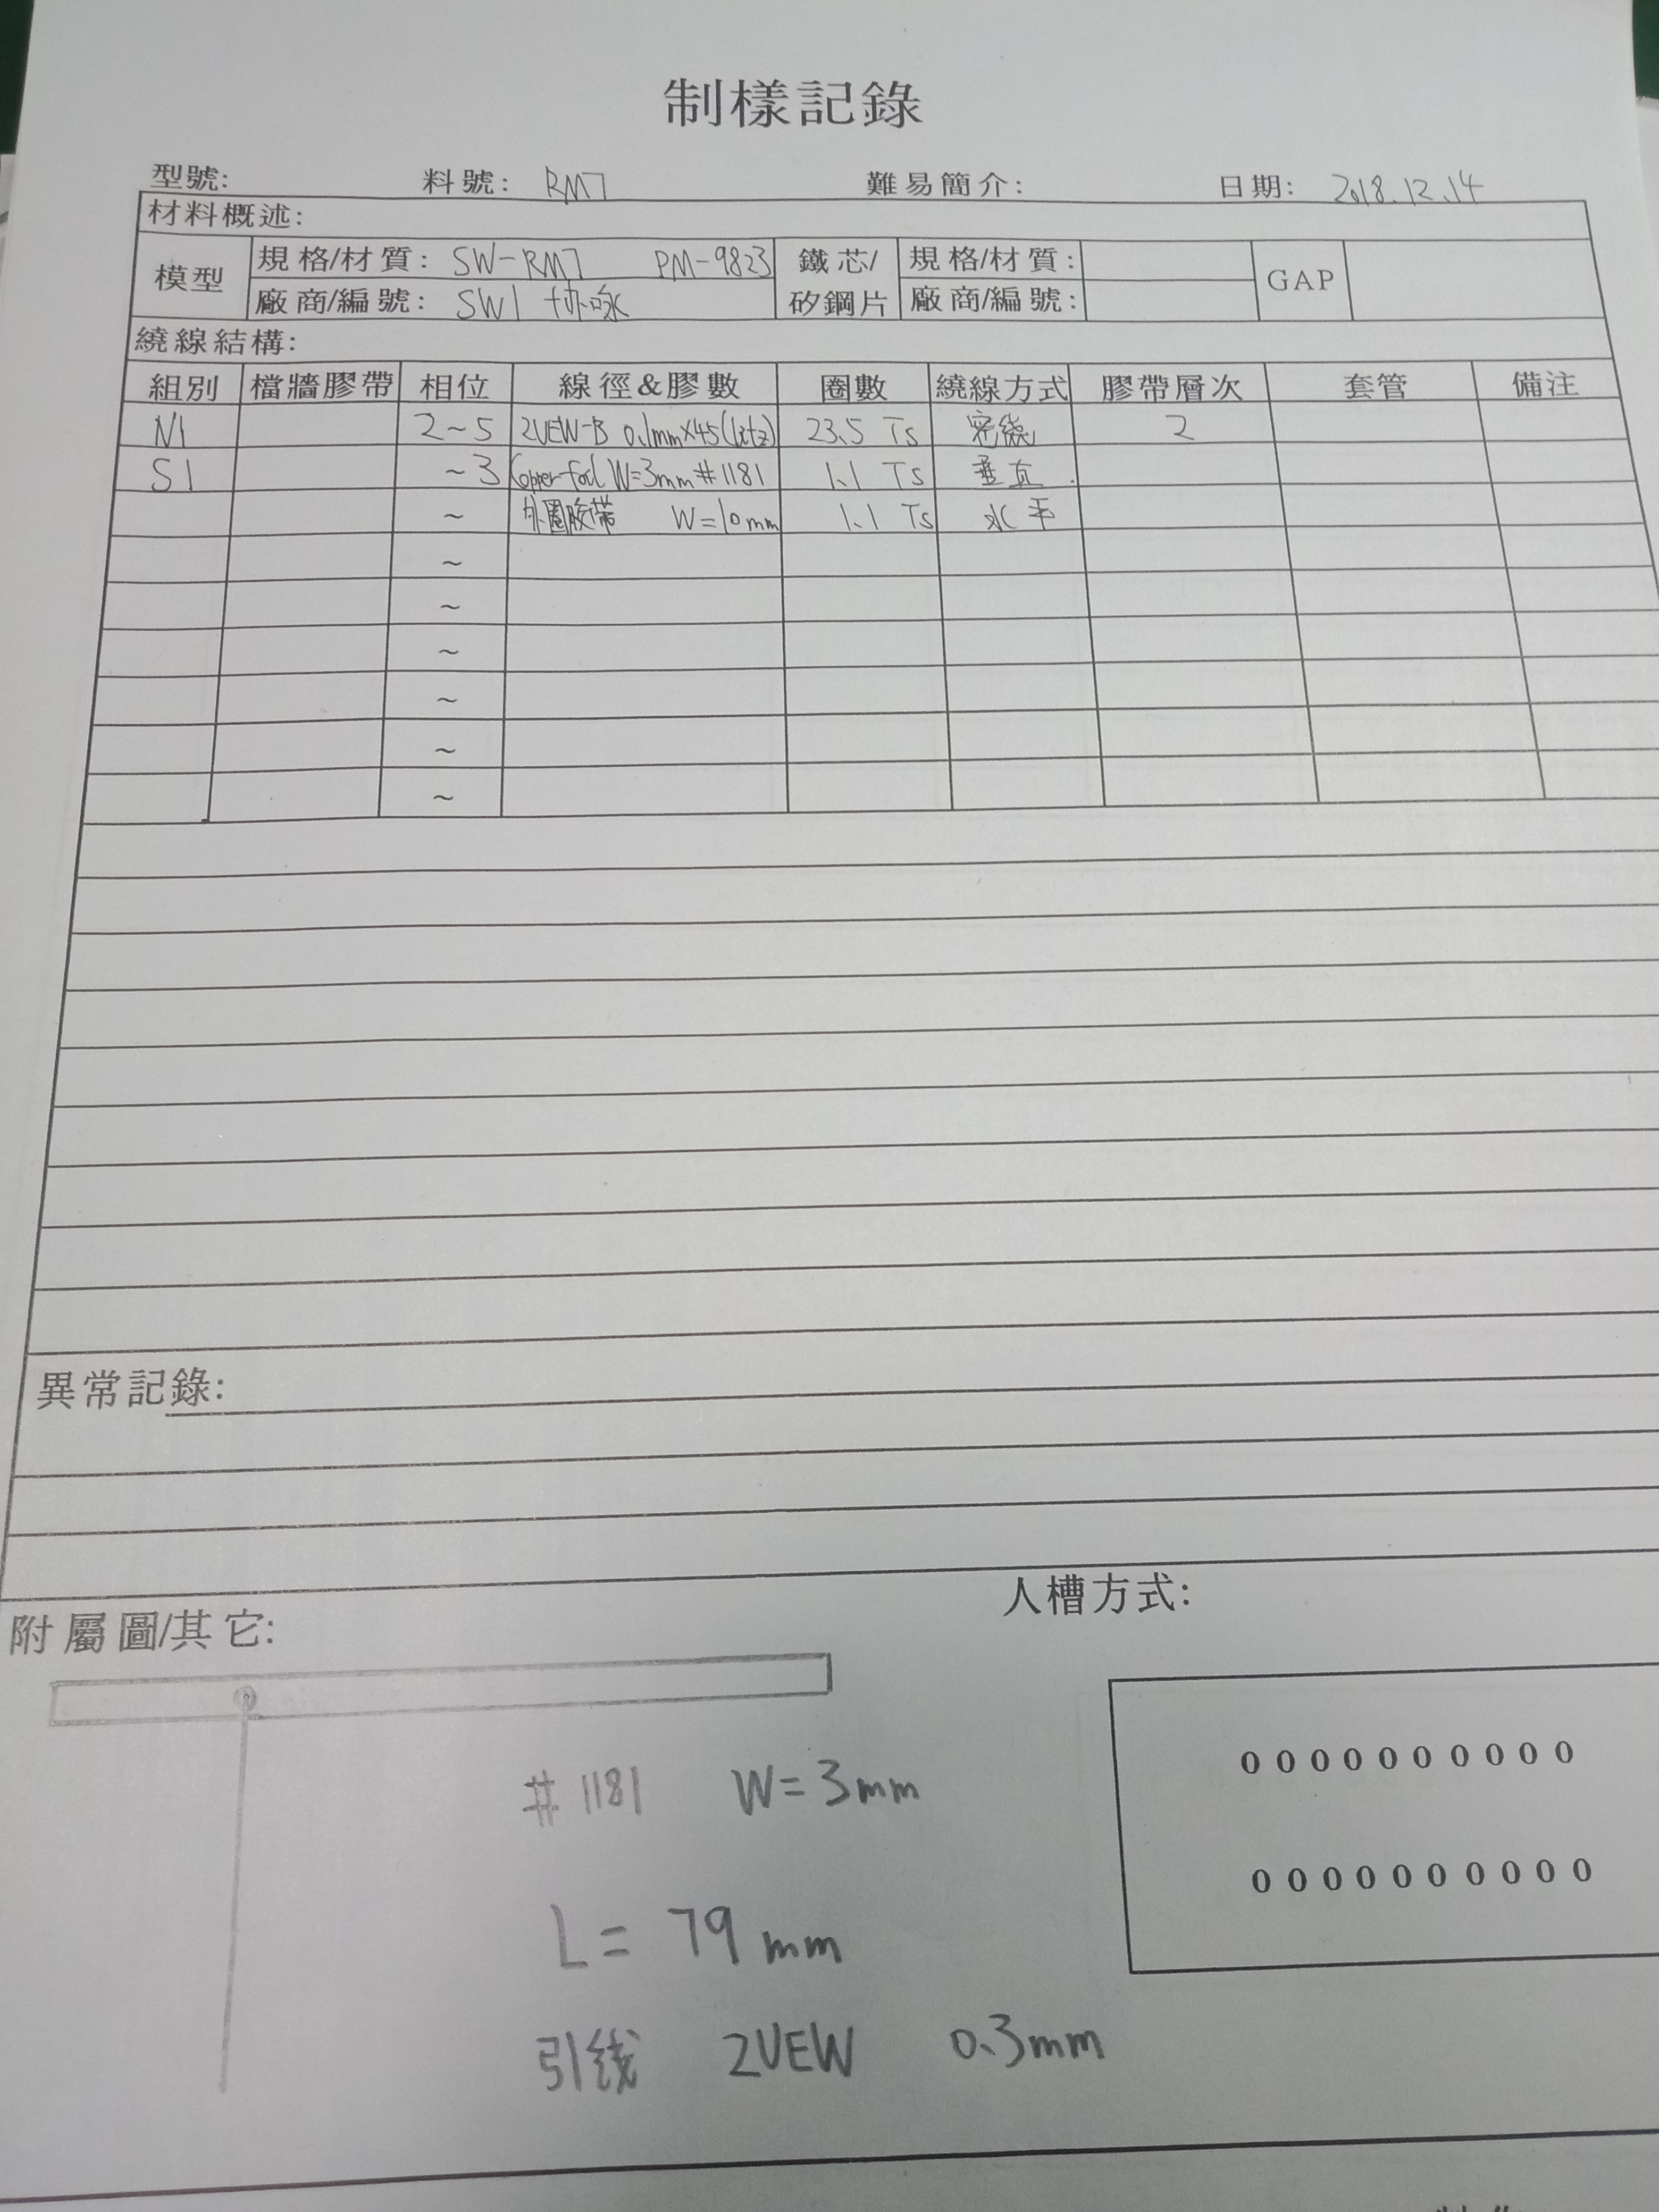 制樣記錄
型號: 料號: RM7 難易簡介: 日期: 2018.12.14
材料概述:
模型 規格/材質: SW-RM7 PM-9823 鐵芯/矽鋼片 規格/材質: GAP
廠商/編號: SW1 协咏 廠商/編號:
繞線結構:
組別 檔牆膠帶 相位 線徑&膠數 圈數 繞線方式 膠帶層次 套管 備注
N1 2~5 2UEW-B 0.1mm×45(litz) 23.5 Ts 密绕 2
S1 ~3 Copper-foil W=3mm #1181 1.1 Ts 垂直
~ 外圈胶带 W=10mm 1.1 Ts 水平
~
~
~
~
~
~
異常記錄:
附屬圖/其它:
人槽方式:
#1181 W=3mm
L=79mm
引线 2UEW 0.3mm
0 0 0 0 0 0 0 0 0 0
0 0 0 0 0 0 0 0 0 0